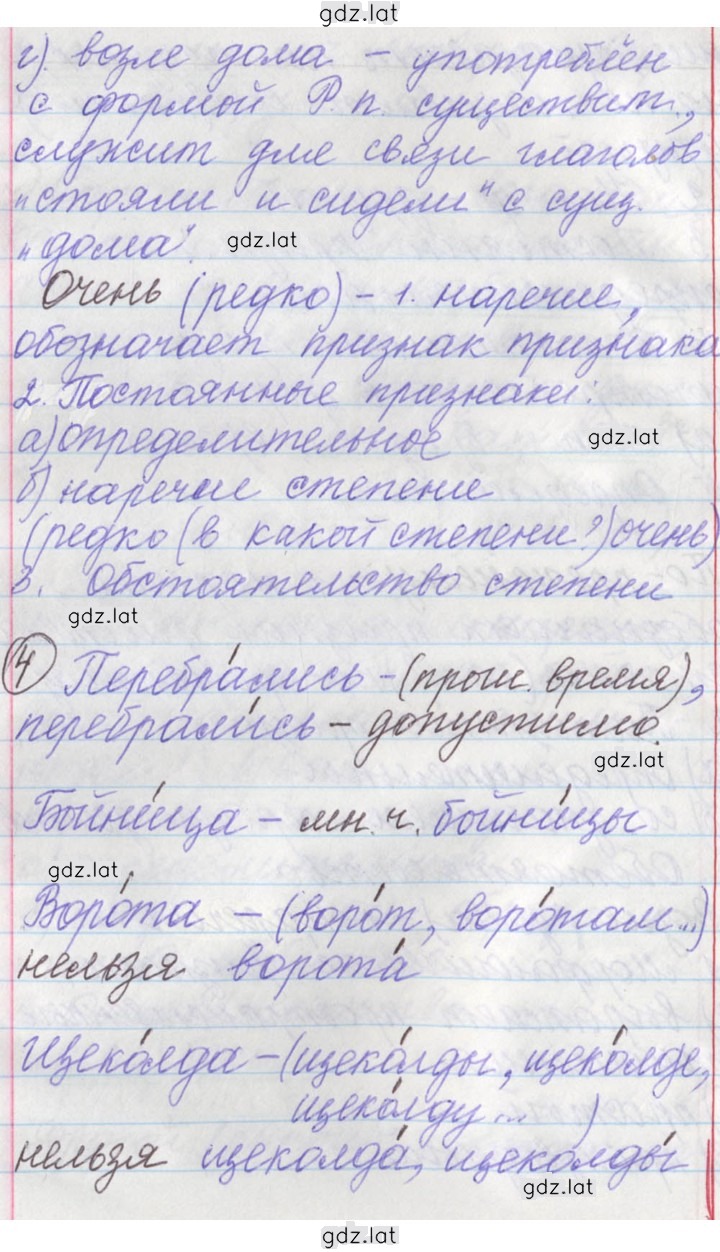 gdz.lat
г). возле дома – употреблён
с формой Р.п. существит.,
служит для связи глаголов
„стояли и сидели" с сущ.
„дома".
gdz.lat
Очень (редко) – 1. наречие,
обозначает признак признака
2. Постоянные признаки:
а) определительное
gdz.lat
б) наречие степени
(редко (в какой степени?) очень)
3. Обстоятельство степени
gdz.lat
4 Перебра́лись – (прош. время),
перебрали́сь – допустимо.
gdz.lat
Бойни́ца – мн. ч. бойни́цы
gdz.lat
Воро́та – (воро́т, воро́там...)
нельзя ворота́
Щеко́лда – (щеко́лды, щеко́лде,
щеко́лду ... )
нельзя щеколда́, щеколды́
gdz.lat
gdz.lat